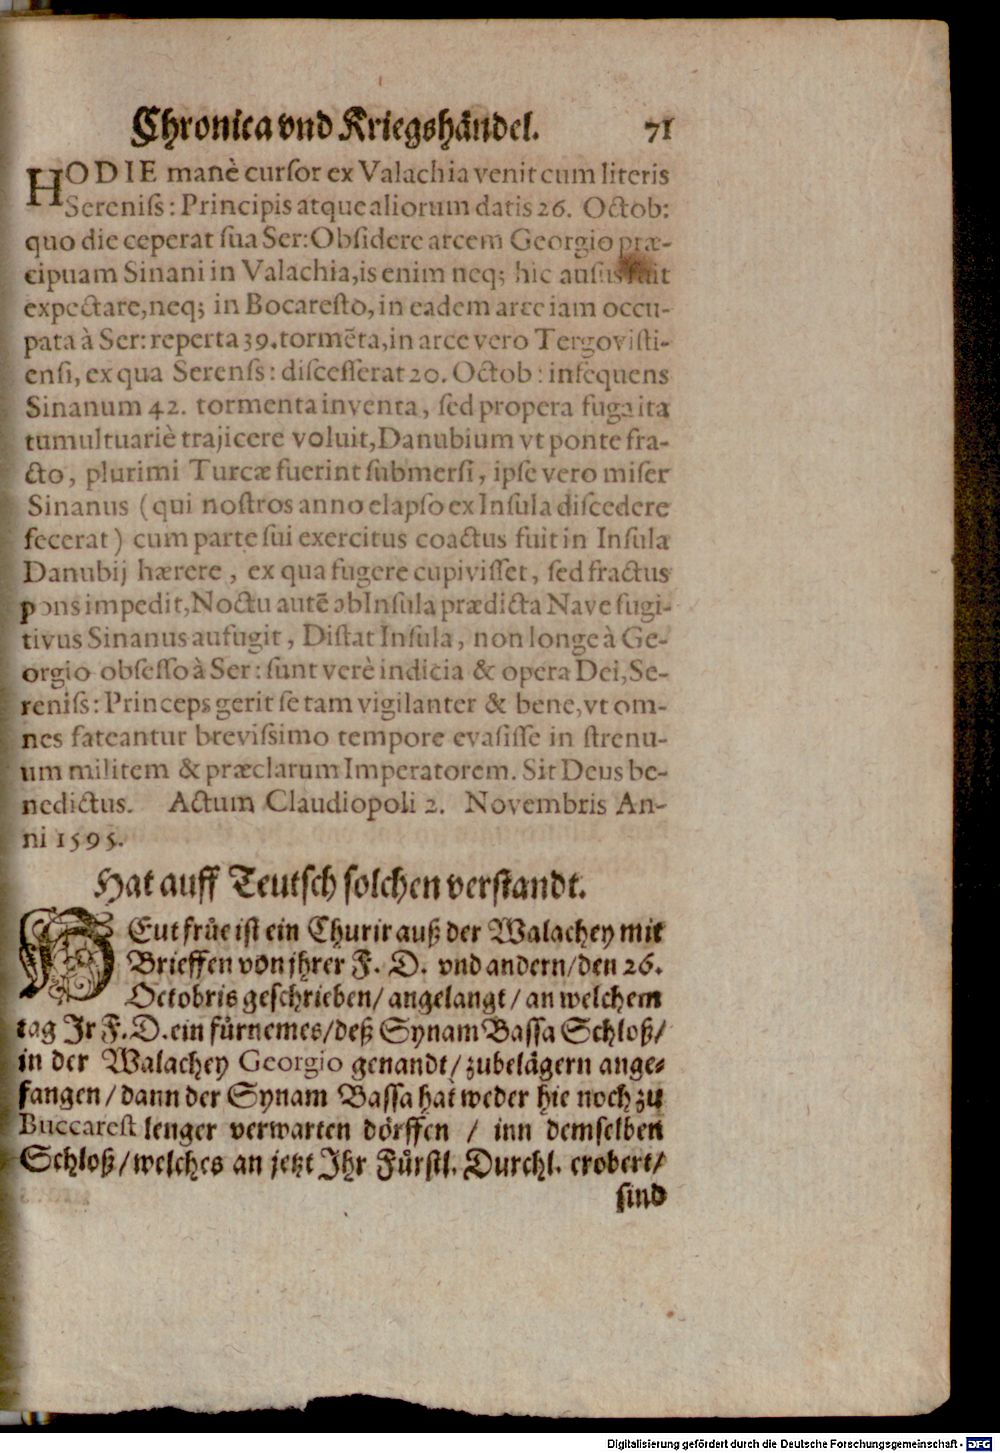 Chronica vnd Kriegshändel. 71
HODIE manè cursor ex Valachia venit cum literis
Sereniss: Principis atque aliorum datis 26. Octob:
quo die ceperat sua Ser: Obsidere arcem Georgio præ-
cipuam Sinani in Valachia, is enim neq; hic ausus fuit
expectare, neq; in Bocaresto, in eadem arce iam occu-
pata à Ser: reperta 39. tormẽta, in arce vero Tergovisti-
ensi, ex qua Serenss: discesserat 20. Octob: insequens
Sinanum 42. tormenta inventa, sed propera fuga ita
tumultuariè trajicere voluit, Danubium vt ponte fra-
cto, plurimi Turcæ fuerint submersi, ipse vero miser
Sinanus (qui nostros anno elapso ex Insula discedere
fecerat) cum parte sui exercitus coactus fuit in Insula
Danubij hærere, ex qua fugere cupivisset, sed fractus
pons impedit, Noctu autẽ ab Insula prædicta Nave fugi-
tivus Sinanus aufugit, Distat Insula, non longe à Ge-
orgio obsesso à Ser: sunt verè indicia & opera Dei, Se-
reniss: Princeps gerit se tam vigilanter & bene, vt om-
nes fateantur brevissimo tempore evasisse in strenu-
um militem & præclarum Imperatorem. Sit Deus be-
nedictus. Actum Claudiopoli 2. Novembris An-
ni 1595.
Hat auff Teutsch solchen verstandt.
HEut früe ist ein Churir auß der Walachey mit
Brieffen von jhrer F. D. vnd andern/ den 26.
Octobris geschrieben/ angelangt/ an welchem
tag Jr F. D. ein fürnemes/ deß Synam Bassa Schloß/
in der Walachey Georgio genandt/ zubelägern ange-
fangen/ dann der Synam Bassa hat weder hie noch zu
Buccarest lenger verwarten dörffen / inn demselben
Schloß/ welches an jetzt Ihr Fürstl. Durchl. erobert/
sind
Digitalisierung gefördert durch die Deutsche Forschungsgemeinschaft - DFG